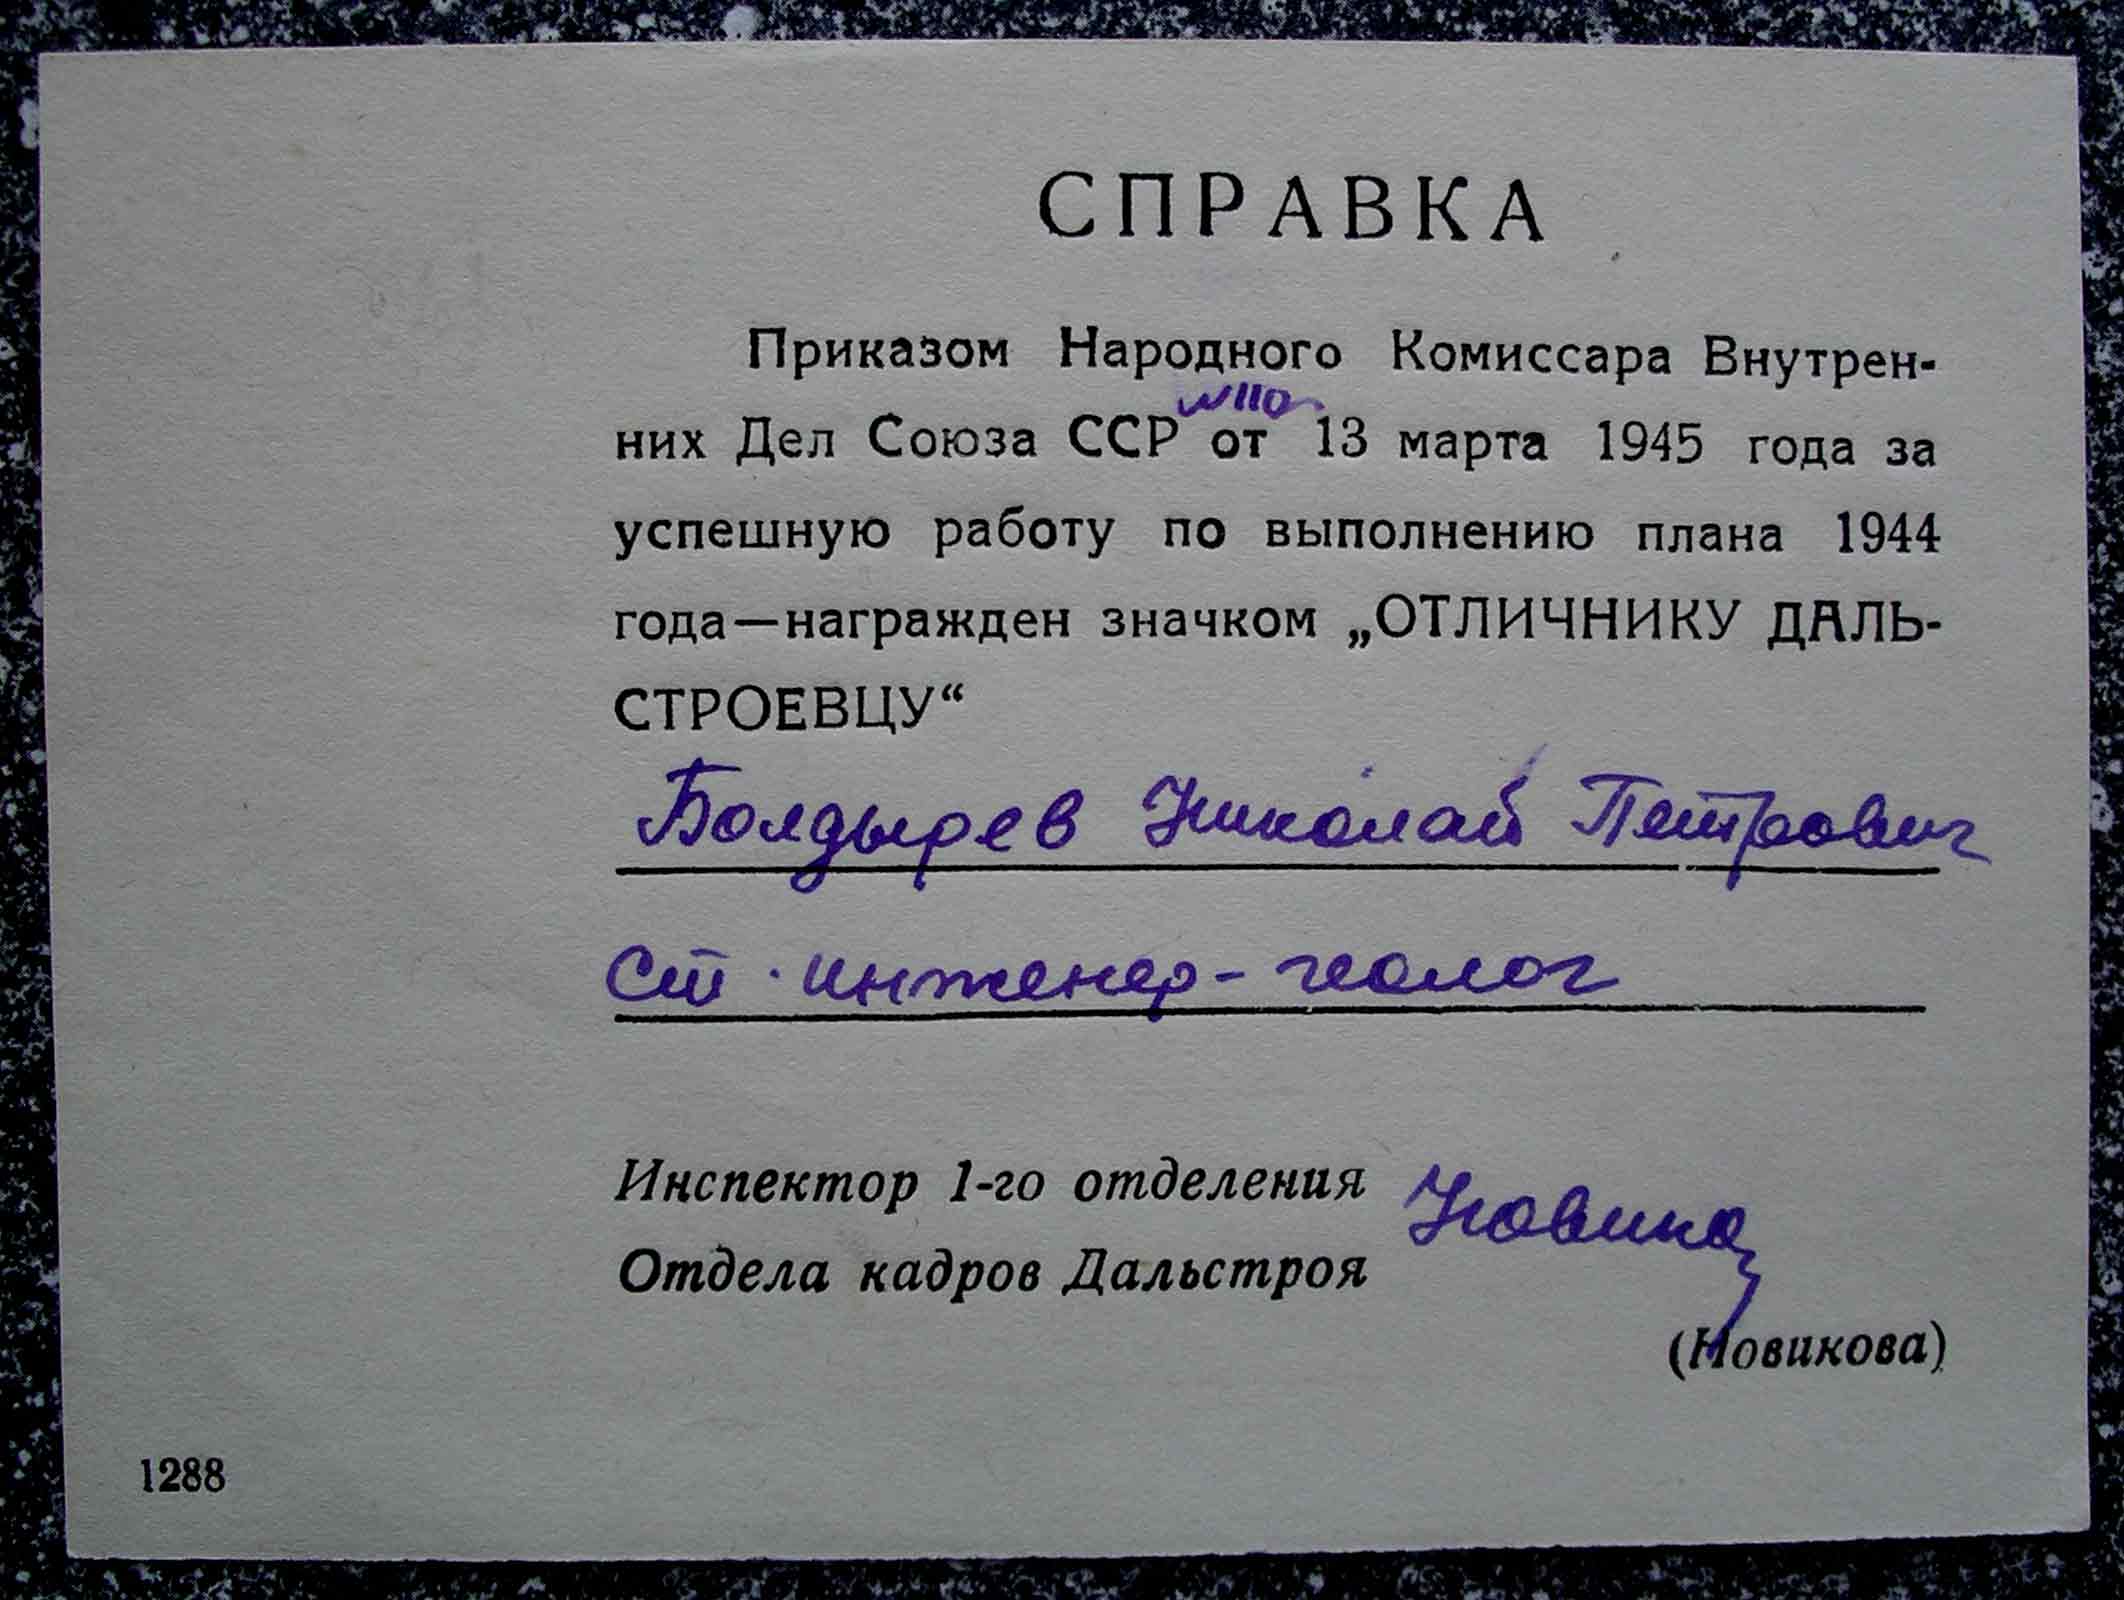 СПРАВКА
Приказом Народного Комиссара Внутрен-
них Дел Союза ССР от 13 марта 1945 года за
успешную работу по выполнению плана 1944
года—награжден значком „ОТЛИЧНИКУ ДАЛЬ-
СТРОЕВЦУ“
Болдырев Николай Петрович
Ст. инженер-геолог
Инспектор 1-го отделения
Отдела кадров Дальстроя
(Новикова)
1288